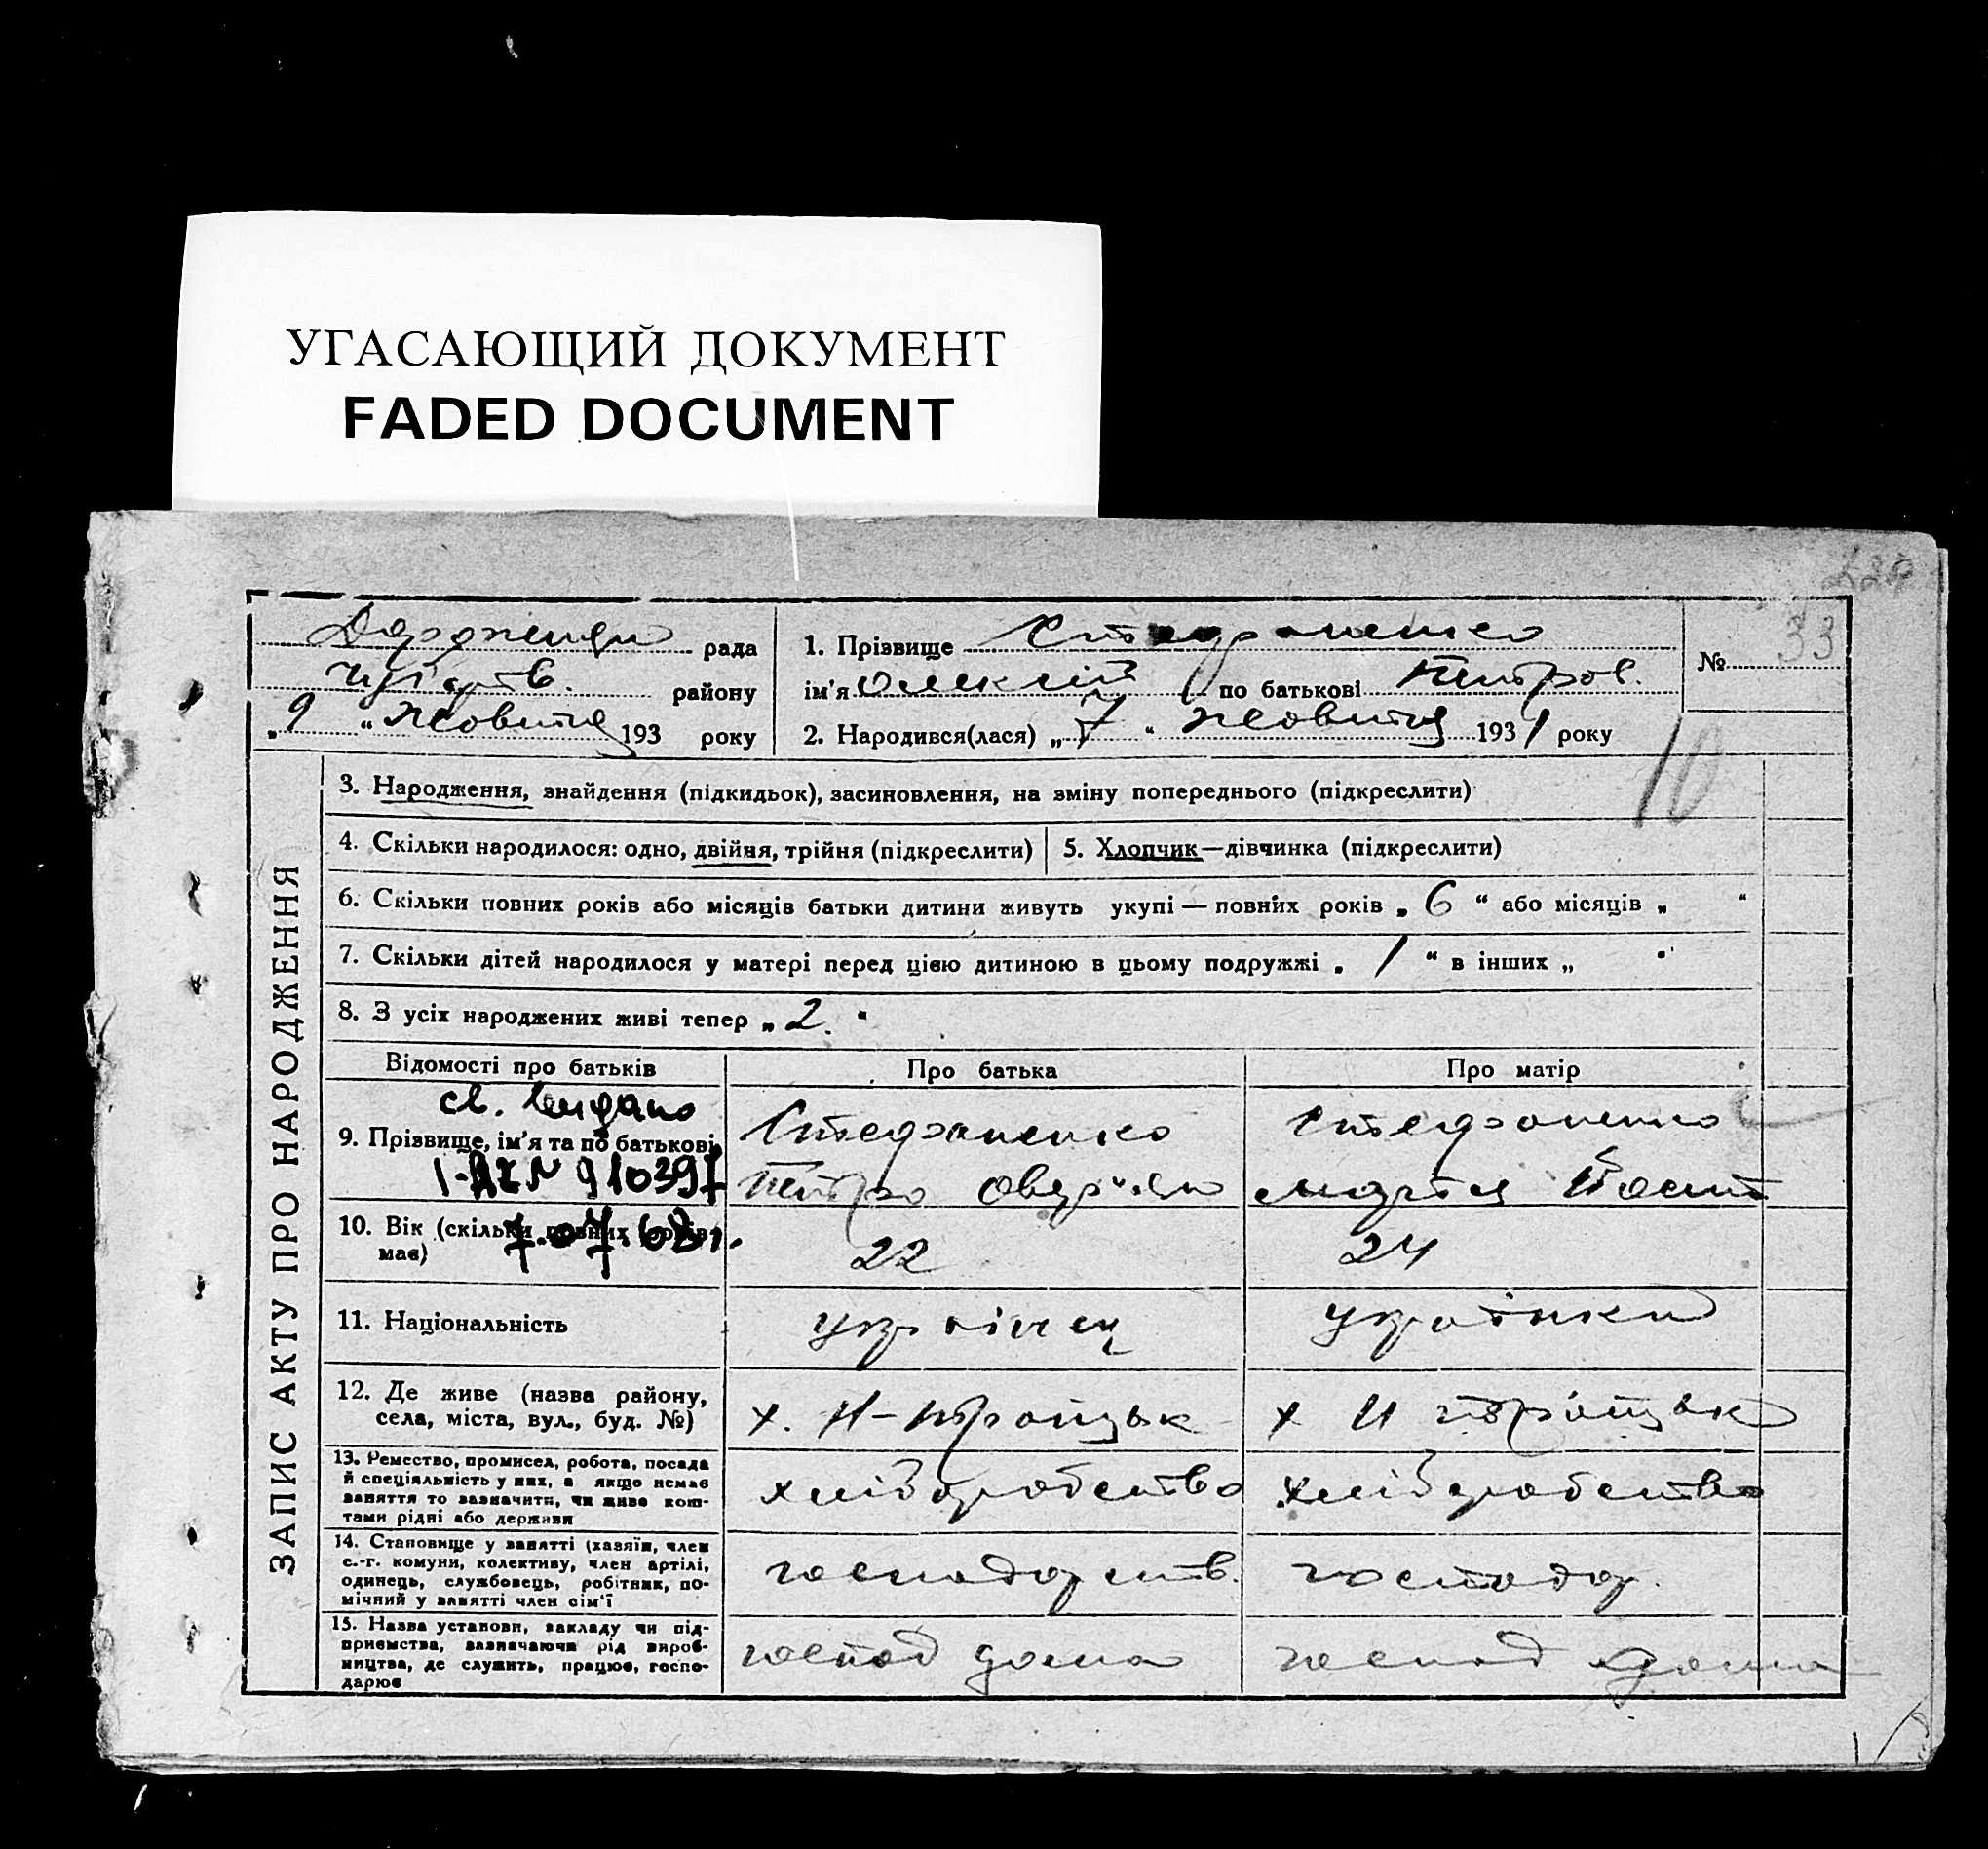 УГАСАЮЩИЙ ДОКУМЕНТ
FADED DOCUMENT
рада
району
„ 9 “ жовтня 193 року
1. Прізвище Стефаненко
ім'я Олексій по батькові Петров.
2. Народився(лася) „ 7 “ жовтня 1931 року
№ 33
10
ЗАПИС АКТУ ПРО НАРОДЖЕННЯ
3. Народження, знайдення (підкидьок), засиновлення, на зміну попереднього (підкреслити)
4. Скільки народилося: одно, двійня, трійня (підкреслити)
5. Хлопчик—дівчинка (підкреслити)
6. Скільки повних років або місяців батьки дитини живуть укупі — повних років „ 6 “ або місяців „ “
7. Скільки дітей народилося у матері перед цією дитиною в цьому подружжі „ 1 “ в інших „ “
8. З усіх народжених живі тепер „ 2. “
Відомості про батьків
Про батька
Про матір
св. видано
9. Прізвище, ім'я та по батькові
I-АІ № 910397
7.07.68 г.
Стефаненко
Петро
Стефаненко
Марія
10. Вік (скільки повних років
має)
22
24
11. Національність
українец
українка
12. Де живе (назва району,
села, міста, вул., буд. №)
х. Н-
х Н
13. Ремество, промисел, робота, посада
й спеціяльність у них, а якщо немає
заняття то зазначити, чи живе кош-
тами рідні або держави
хліборобство
хліборобство
14. Становище у занятті (хазяїн, член
с.-г. комуни, колективу, член артілі,
одинець, службовець, робітник, по-
мічний у занятті член сім'ї
господарств.
господар.
15. Назва установи, закладу чи під-
приємства, зазначаючи рід вироб-
ництва, де служить, працює, госпо-
дарює
господ дома
господ дома